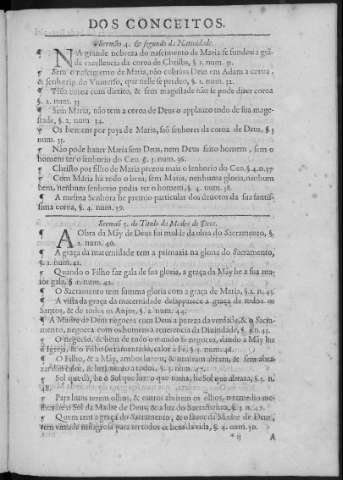 DOS CONCEITOS.
Sermão 4. & segundo da Natividade.
¶ NA grande nobreza do nascimento de Maria se fundou a grã-
de excellencia da coroa de Christo, §. 1. num. 31.
¶ Sem o nascimento de Maria, não cobrara Deus em Adam a coroa,
& senhorio do Universo, que nelle se perdeo, §. 1. num. 32.
¶ Essa coroa com direito, & sem magestade não se pode dizer coroa
§. 2. num. 33
¶ Sem Maria, não tem a coroa de Deus o applauso todo de sua mage-
stade, §. 2. num. 34.
¶ Os homens por graça de Maria, são senhores da coroa de Deus, § 3
num. 35.
¶ Não pode haver Maria sem Deus, nem Deus feito homem, sem o
homem ter o senhorio do Ceo. §. 3. num. 36.
¶ Christo por filho de Maria prezou mais o senhorio do Ceo. § 4. n. 37
¶ Com Maria ha todo o bem, sem Maria, nenhuma gloria, nenhum
bem, nenhum senhorio podia ter o homem, §. 4. num. 38.
¶ A mesma Senhora he premio particular dos devotos da sua santis-
sima coroa, §. 4. num. 39.
Sermão 5. do Titulo da Madre de Deos.
¶ A Obra da Mãy de Deus foi molde da obra do Sacramento, §.
1. num. 40.
¶ A graça da maternidade tem a primazia na gloria do Sacramento,
§. 1. num. 41.
¶ Quando o Filho faz gala de sua gloria, a graça da Mãy he a sua ma-
ior gala, §. 1. num. 42.
¶ O Sacramento tem summa gloria com a graça de Maria, §. 2. n. 43.
¶ A vista da graça da maternidade desapparece a graça de todos os
Santos, & de todos os Anjos, §. 2. num. 44.
¶ A Madre de Deus negocea com Deus a pureza da verdade, & o Sacra-
mento, negocea com os homens a reverencia da Divindade, §. 3. n. 45.
¶ O negocio, & bem de todo o mundo se negocea, dando a Mãy luz
à Igreja, & o Filho sacramentado, calor à Fè, §. 3. num. 46.
¶ O Filho, & a Mãy, ambos luzem, & ambos abrazam, & sem abra-
zar nos luze, & luzindo a todos, §. 3. num. 47.
¶ Sol que dà, he o Sol que luz: o que tinha, he Sol que abraza, §. 3. n.
48.
¶ Para huns terem olhos, & outros abrirem os olhos, o remedio mo-
stra o Sol da Madre de Deus, & a luz do Sacramento, §. 3. n. 47.
¶ Quem tem a graça do Sacramento, & o favor da Madre de Deus,
tem vinda milagrosa para ver todos o caminho da luz lavada, §. 4. num.
* ij A